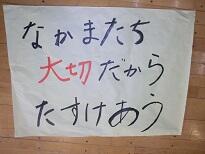 なかまたち
大切だから
たすけあう